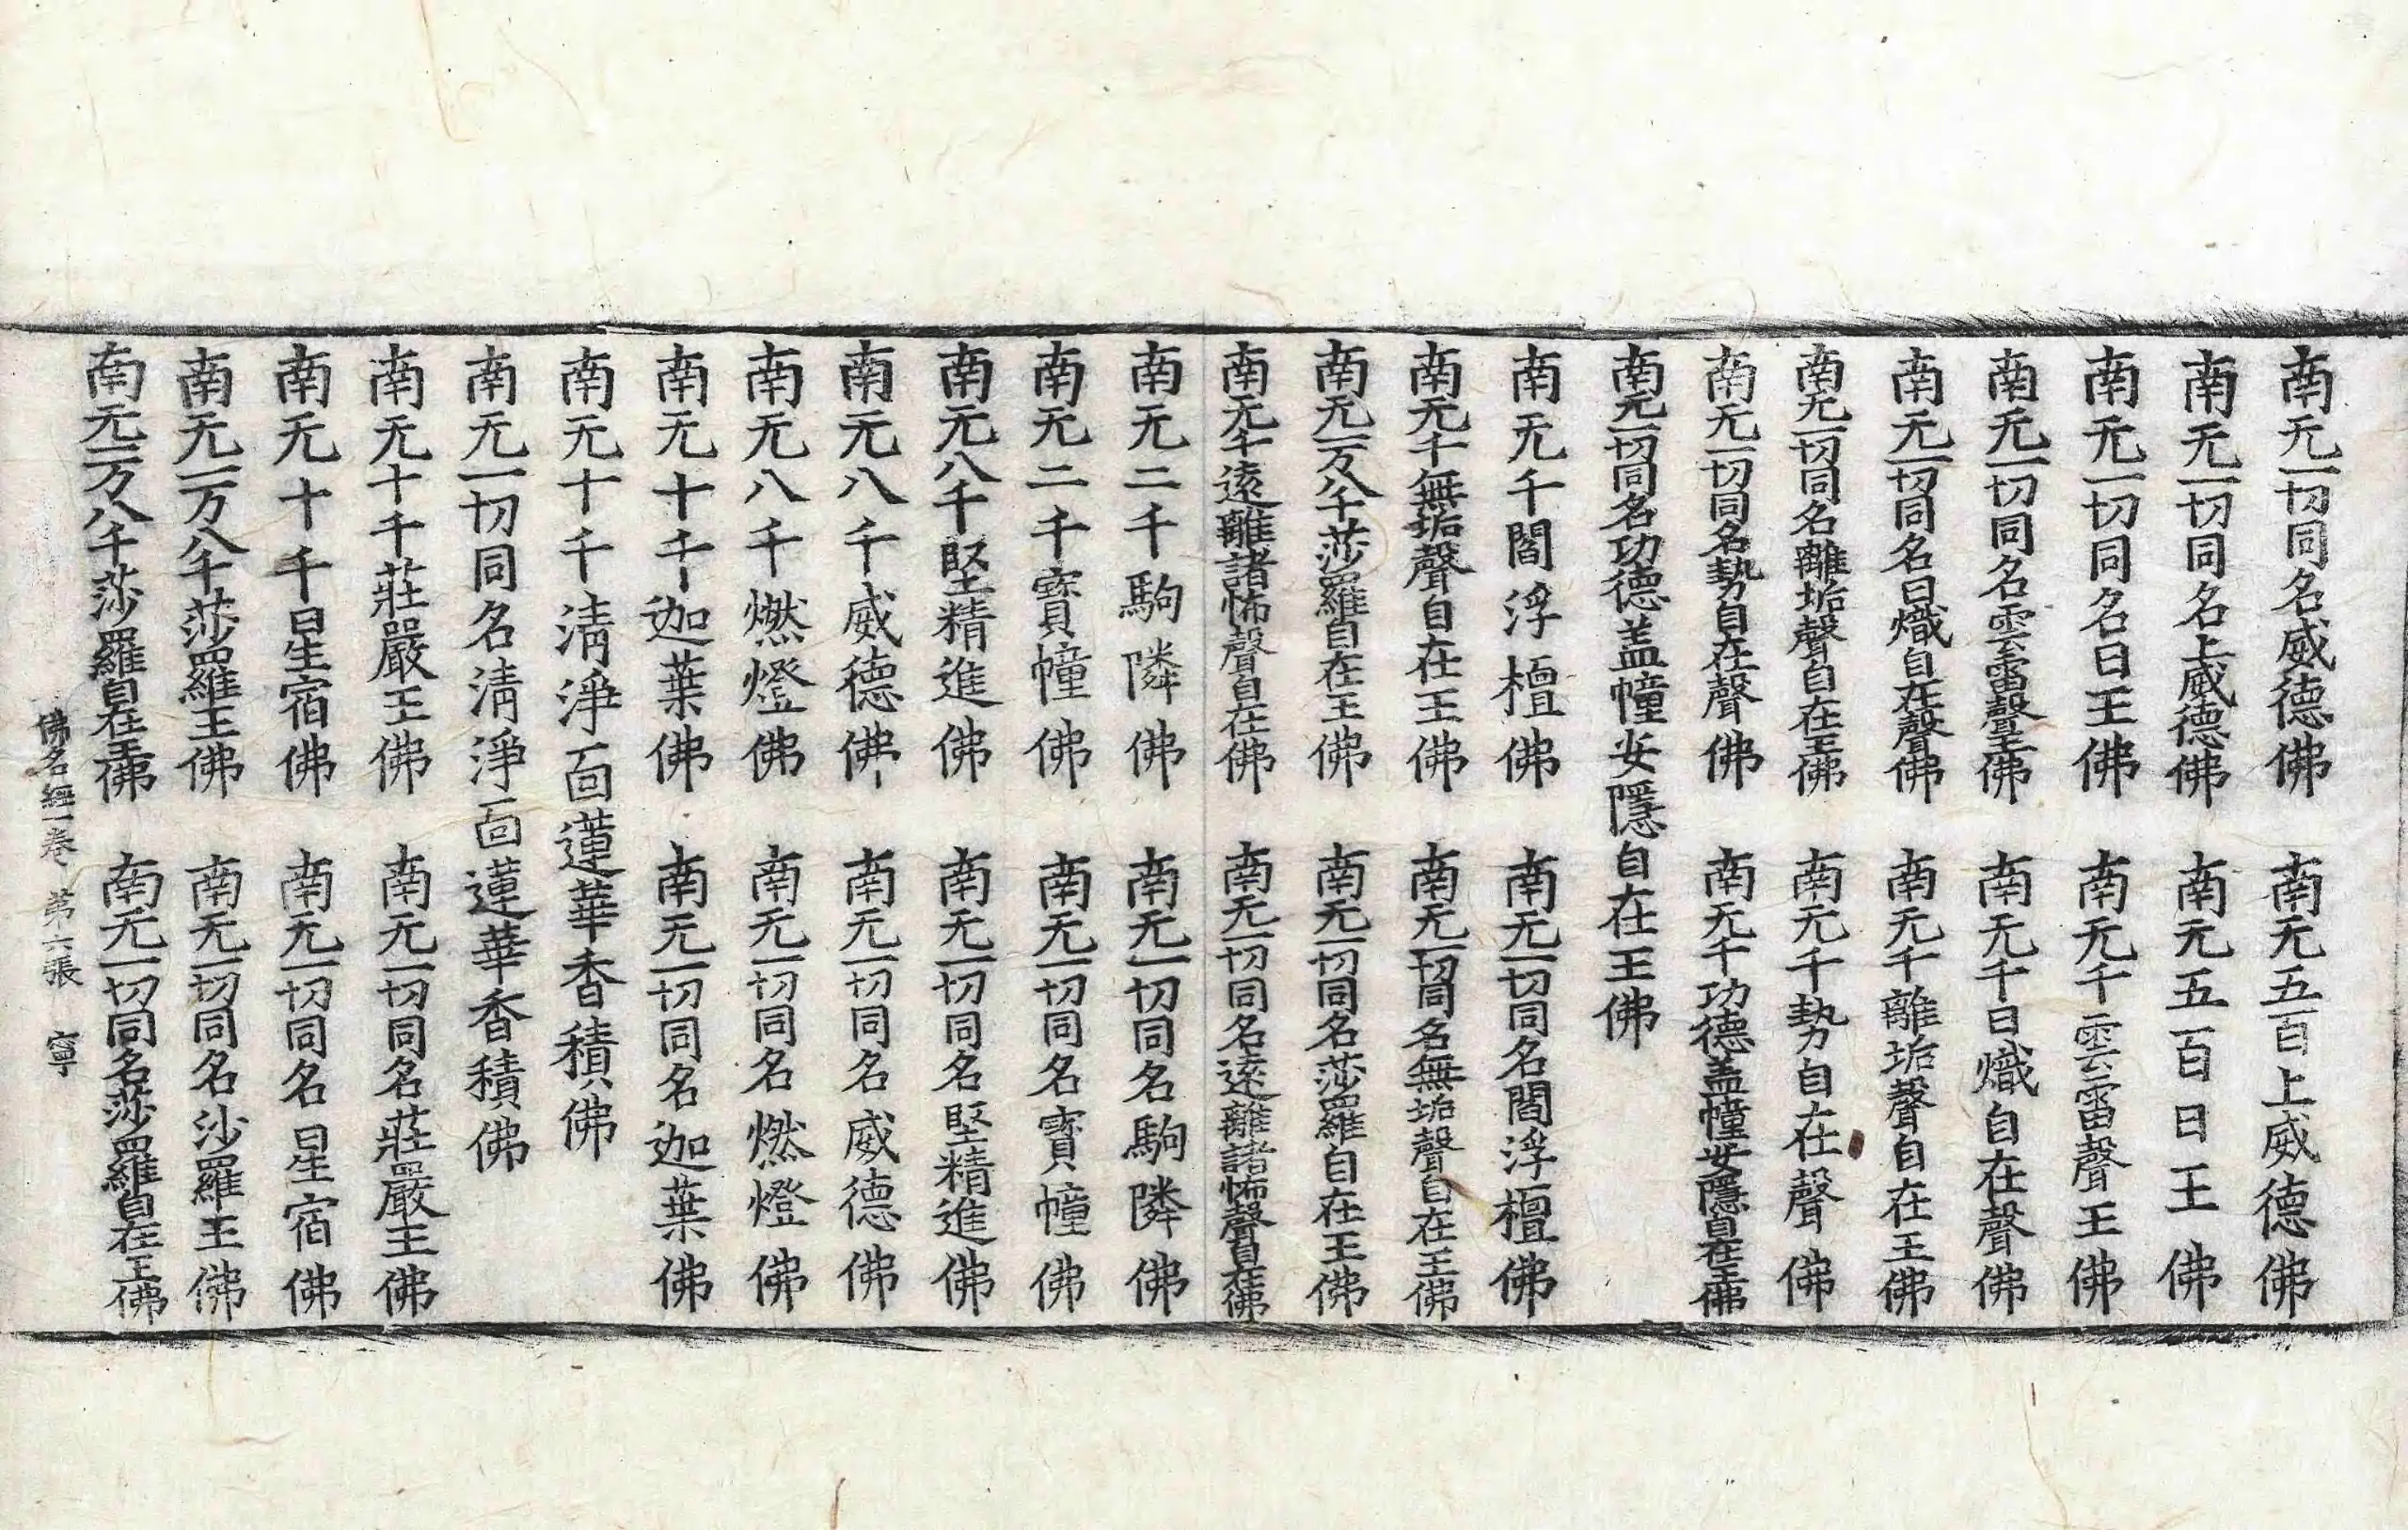 南无一切同名威德佛　南无五百上威德佛
南无一切同名上威德佛　南无五百日王佛
南无一切同名日王佛　南无千雲雷聲王佛
南无一切同名雲雷聲王佛　南无千日熾自在聲佛
南无一切同名日熾自在聲佛　南无千離垢聲自在王佛
南无一切同名離垢聲自在王佛　南无千勢自在聲佛
南无一切同名勢自在聲佛　南无千功德盖幢安隱自在王佛
南无一切同名功德盖幢安隱自在王佛
南无千閻浮檀佛　南无一切同名閻浮檀佛
南无千無垢聲自在王佛　南无一切同名無垢聲自在王佛
南无一万八千莎羅自在王佛　南无一切同名莎羅自在王佛
南无千遠離諸怖聲自在佛　南无一切同名遠離諸怖聲自在佛
南无二千駒隣佛　南无一切同名駒隣佛
南无二千寶幢佛　南无一切同名寶幢佛
南无八千堅精進佛　南无一切同名堅精進佛
南无八千威德佛　南无一切同名威德佛
南无八千燃燈佛　南无一切同名燃燈佛
南无十千迦葉佛　南无一切同名迦葉佛
南无十千清淨面蓮華香積佛
南无一切同名清淨面蓮華香積佛
南无十千莊嚴王佛　南无一切同名莊嚴王佛
南无十千星宿佛　南无一切同名星宿佛
南无一万八千莎羅王佛　南无一切同名沙羅王佛
南无一万八千莎羅自在王佛　南无一切同名莎羅自在王佛
佛名經一卷　第六張　寧